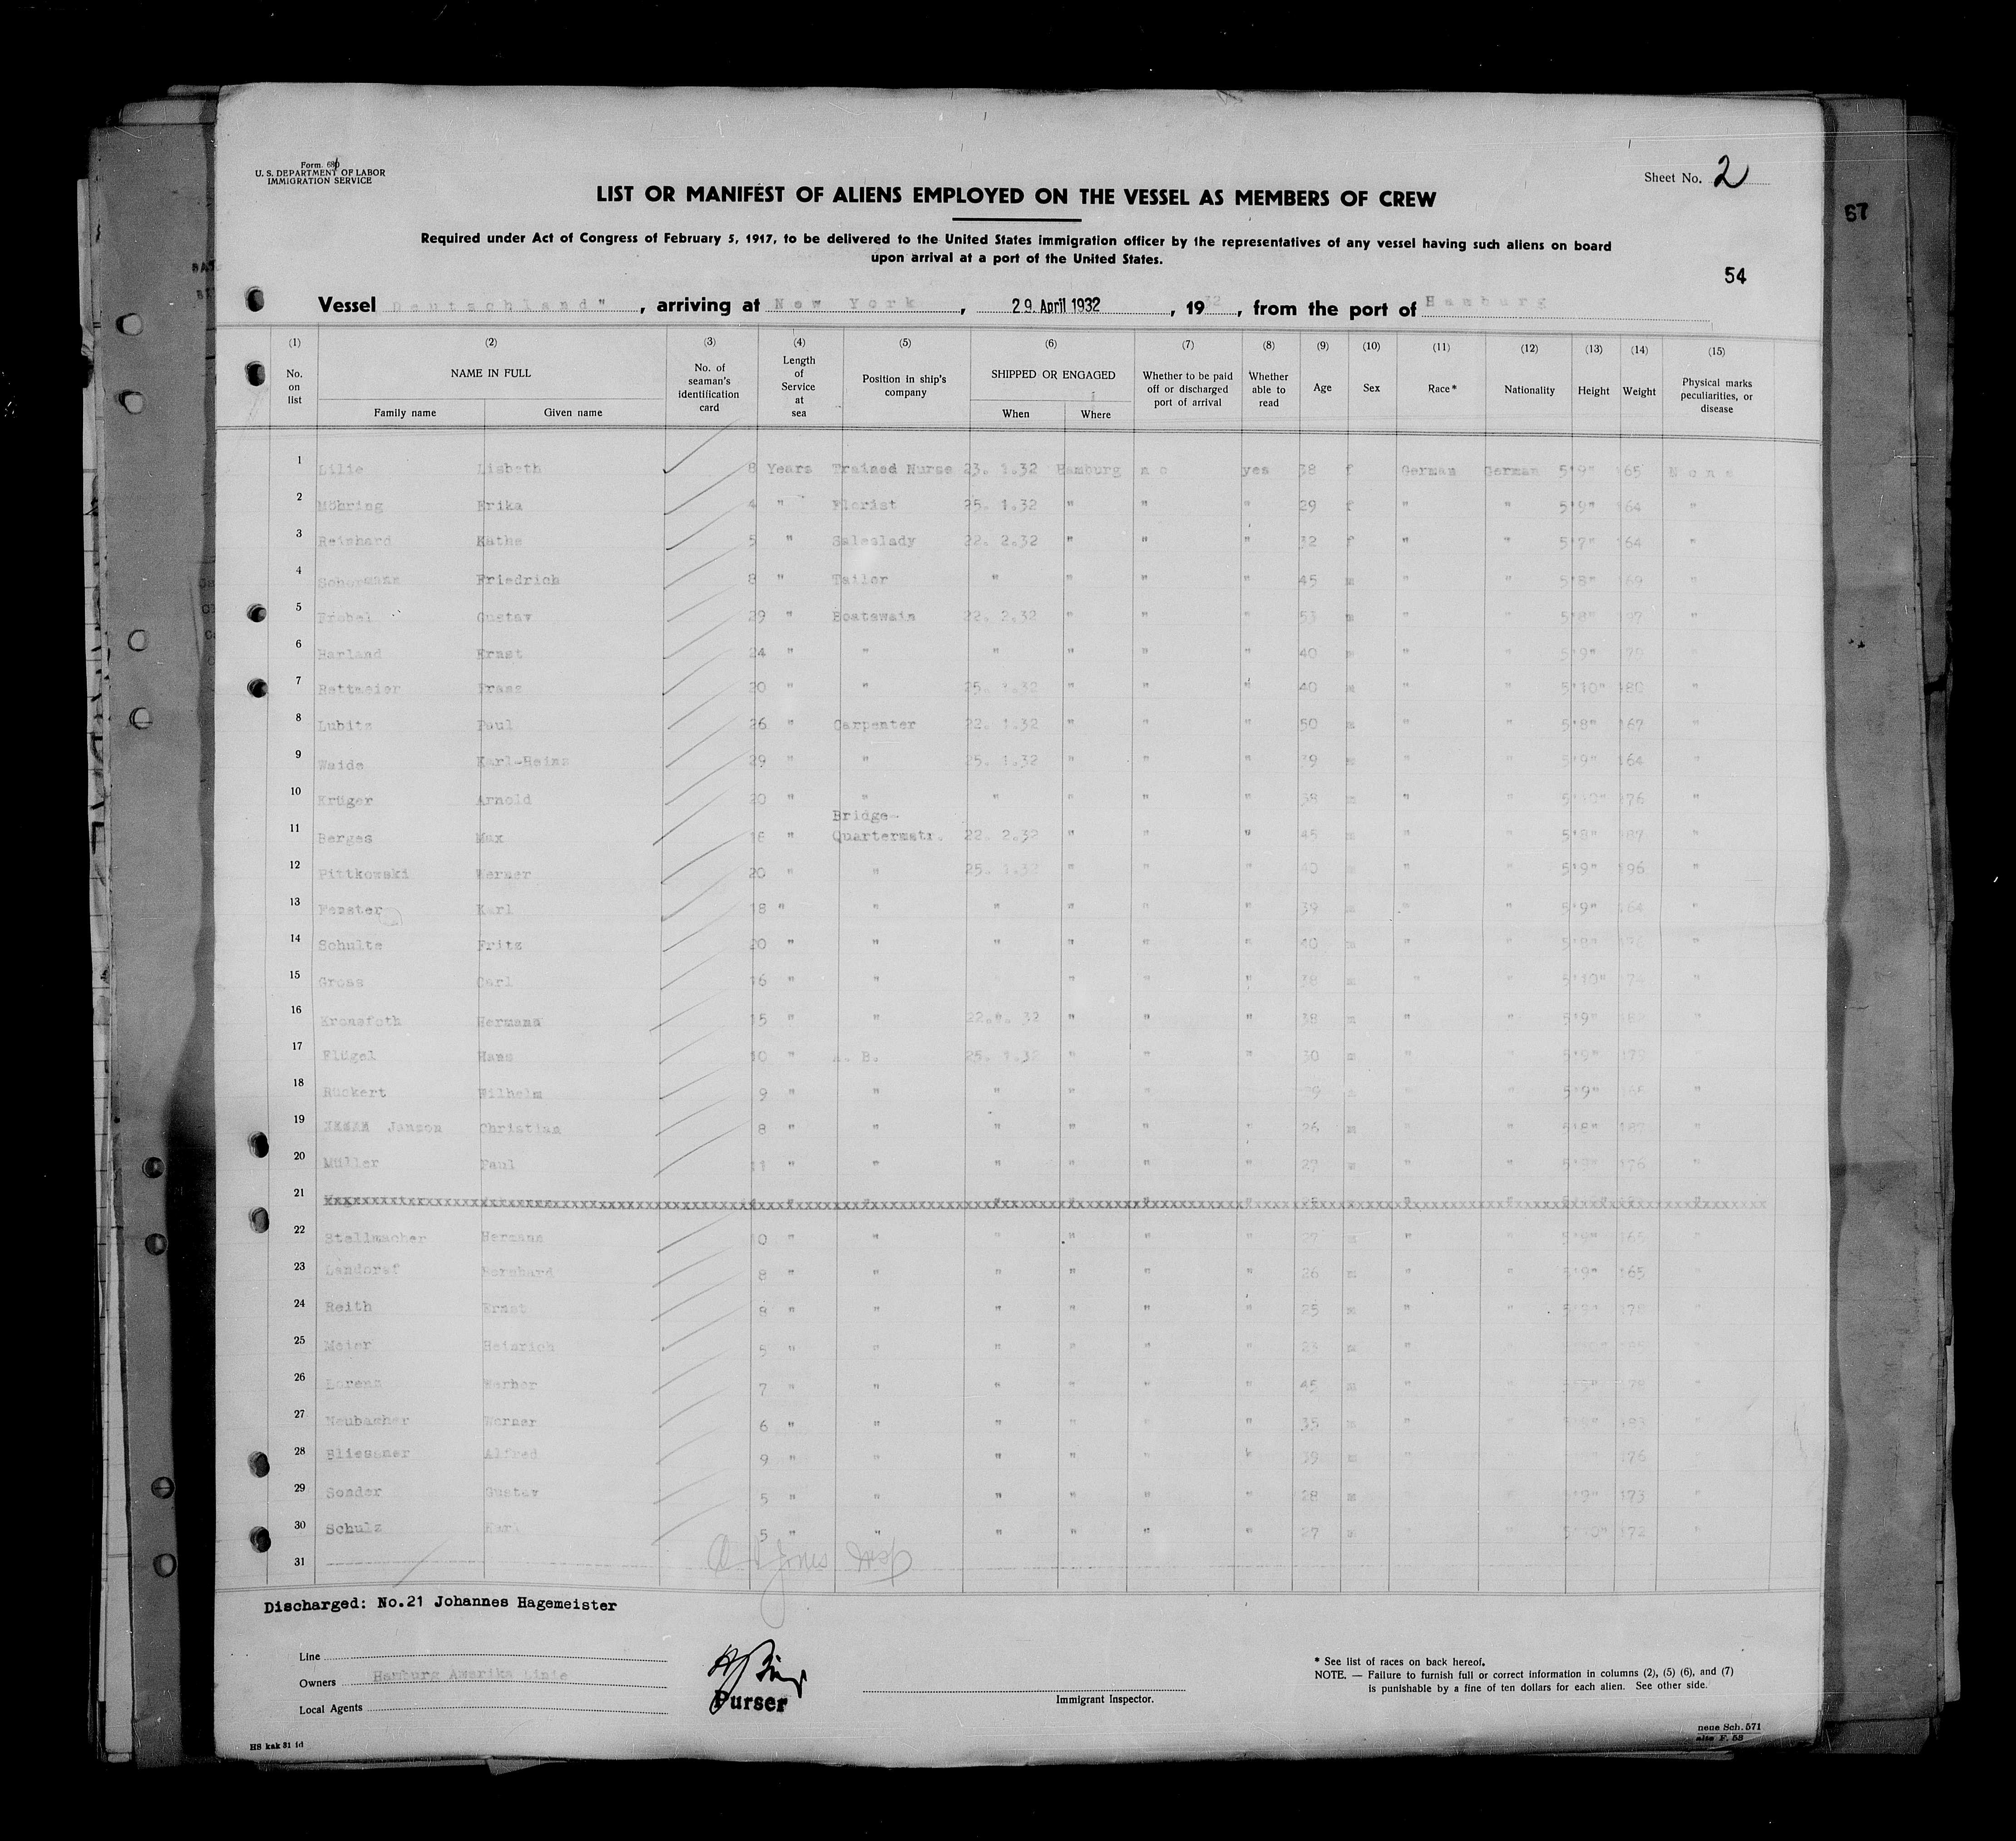 Form 680
U. S. DEPARTMENT OF LABOR
IMMIGRATION SERVICE
Sheet No. 2
LIST OR MANIFEST OF ALIENS EMPLOYED ON THE VESSEL AS MEMBERS OF CREW
67
Required under Act of Congress of February 5, 1917, to be delivered to the United States immigration officer by the representatives of any vessel having such aliens on board
upon arrival at a port of the United States.
54
Vessel Deutschland", arriving at New York, 29. April 1932, 1932, from the port of Hamburg
(1) (2) (3) (4) (5) (6) (7) (8) (9) (10) (11) (12) (13) (14) (15)
No. on list
NAME IN FULL
Family name Given name
No. of seaman's identification card
Length of Service at sea
Position in ship's company
SHIPPED OR ENGAGED
When Where
Whether to be paid off or discharged port of arrival
Whether able to read
Age
Sex
Race*
Nationality
Height
Weight
Physical marks peculiarities, or disease
1 Lilie Lisbeth 8 Years Trained Nurse 23. 1.32 Hamburg no yes 38 f German German 5'9" 165 None
2 Möhring Erika 4 " Florist 25. 1.32 " " " 29 f " " 5'9" 164 "
3 Reinhard Käthe 5 " Saleslady 22. 2.32 " " " 32 f " " 5'7" 164 "
4 Friedrich 8 " Tailor " " " " 45 m " " 5'8" 169 "
5 Gustav 29 " Boatswain 22. 2.32 " " " 53 m " " 5'8" 197 "
6 Harland Ernst 24 " " " " " " 40 m " " 5'9" "
7 Franz 20 " " 25. 1.32 " " " 40 m " " 5'10" 180 "
8 Lubitz Paul 26 " Carpenter 22. 1.32 " " " 50 m " " 5'8" 167 "
9 Waida Karl-Heinz 29 " " 25. 1.32 " " " 39 m " " 5'9" 164 "
10 Krüger Arnold 20 " " " " " " 38 m " " 5'10" 176 "
Bridge-
11 Berges Max 16 " Quartermstr. 22. 2.32 " " " 45 m " " 5'8" 187 "
12 Pittkowski Werner 20 " " 25. 1.32 " " " 40 m " " 5'9" 196 "
13 Fenster Karl 18 " " " " " " 39 m " " 5'9" 164 "
14 Schulte Fritz 20 " " " " " " 40 m " " "
15 Gross Carl 16 " " " " " 38 m " " 5'10" 174 "
16 Hermann 15 " " " " " 38 m " " 5'9" "
17 Flügel Hans 10 " A. B. 25. 1.32 " " " 30 m " " 5'9" 179 "
18 Rückert Wilhelm 9 " " " " " " " " 5'9" "
19 Janson Christian 8 " " " " " " 26 m " " 5'8" "
20 Müller Paul 11 " " " " " " m " " 176 "
21
22 Stellmacher Hermann 10 " " " " " " 27 m " " 5'9" 165 "
23 Landorff Bernhard 8 " " " " " " 26 m " " 5'9" 165 "
24 Reith Ernst 8 " " " " " " 25 m " " "
25 Meier Heinrich 5 " " " " " " m " " "
26 Lorenz 7 " " " " " " 45 m " " "
27 Neubacher Werner 6 " " " " " " 35 m " " 183 "
28 Bliessner Alfred 9 " " " " " 39 m " " 176 "
29 Sonder Gustav 5 " " " " " " 28 m " " 173 "
30 Schulz Karl 5 " " " " " " 27 m " " 5'10" 172 "
31
Jones Insp
Discharged: No.21 Johannes Hagemeister
Line
Owners Hamburg Amerika Linie
Local Agents
Purser
Immigrant Inspector.
* See list of races on back hereof.
NOTE. — Failure to furnish full or correct information in columns (2), (5) (6), and (7)
is punishable by a fine of ten dollars for each alien. See other side.
HS kak 31 id
neue Sch. 571
alte F. 53